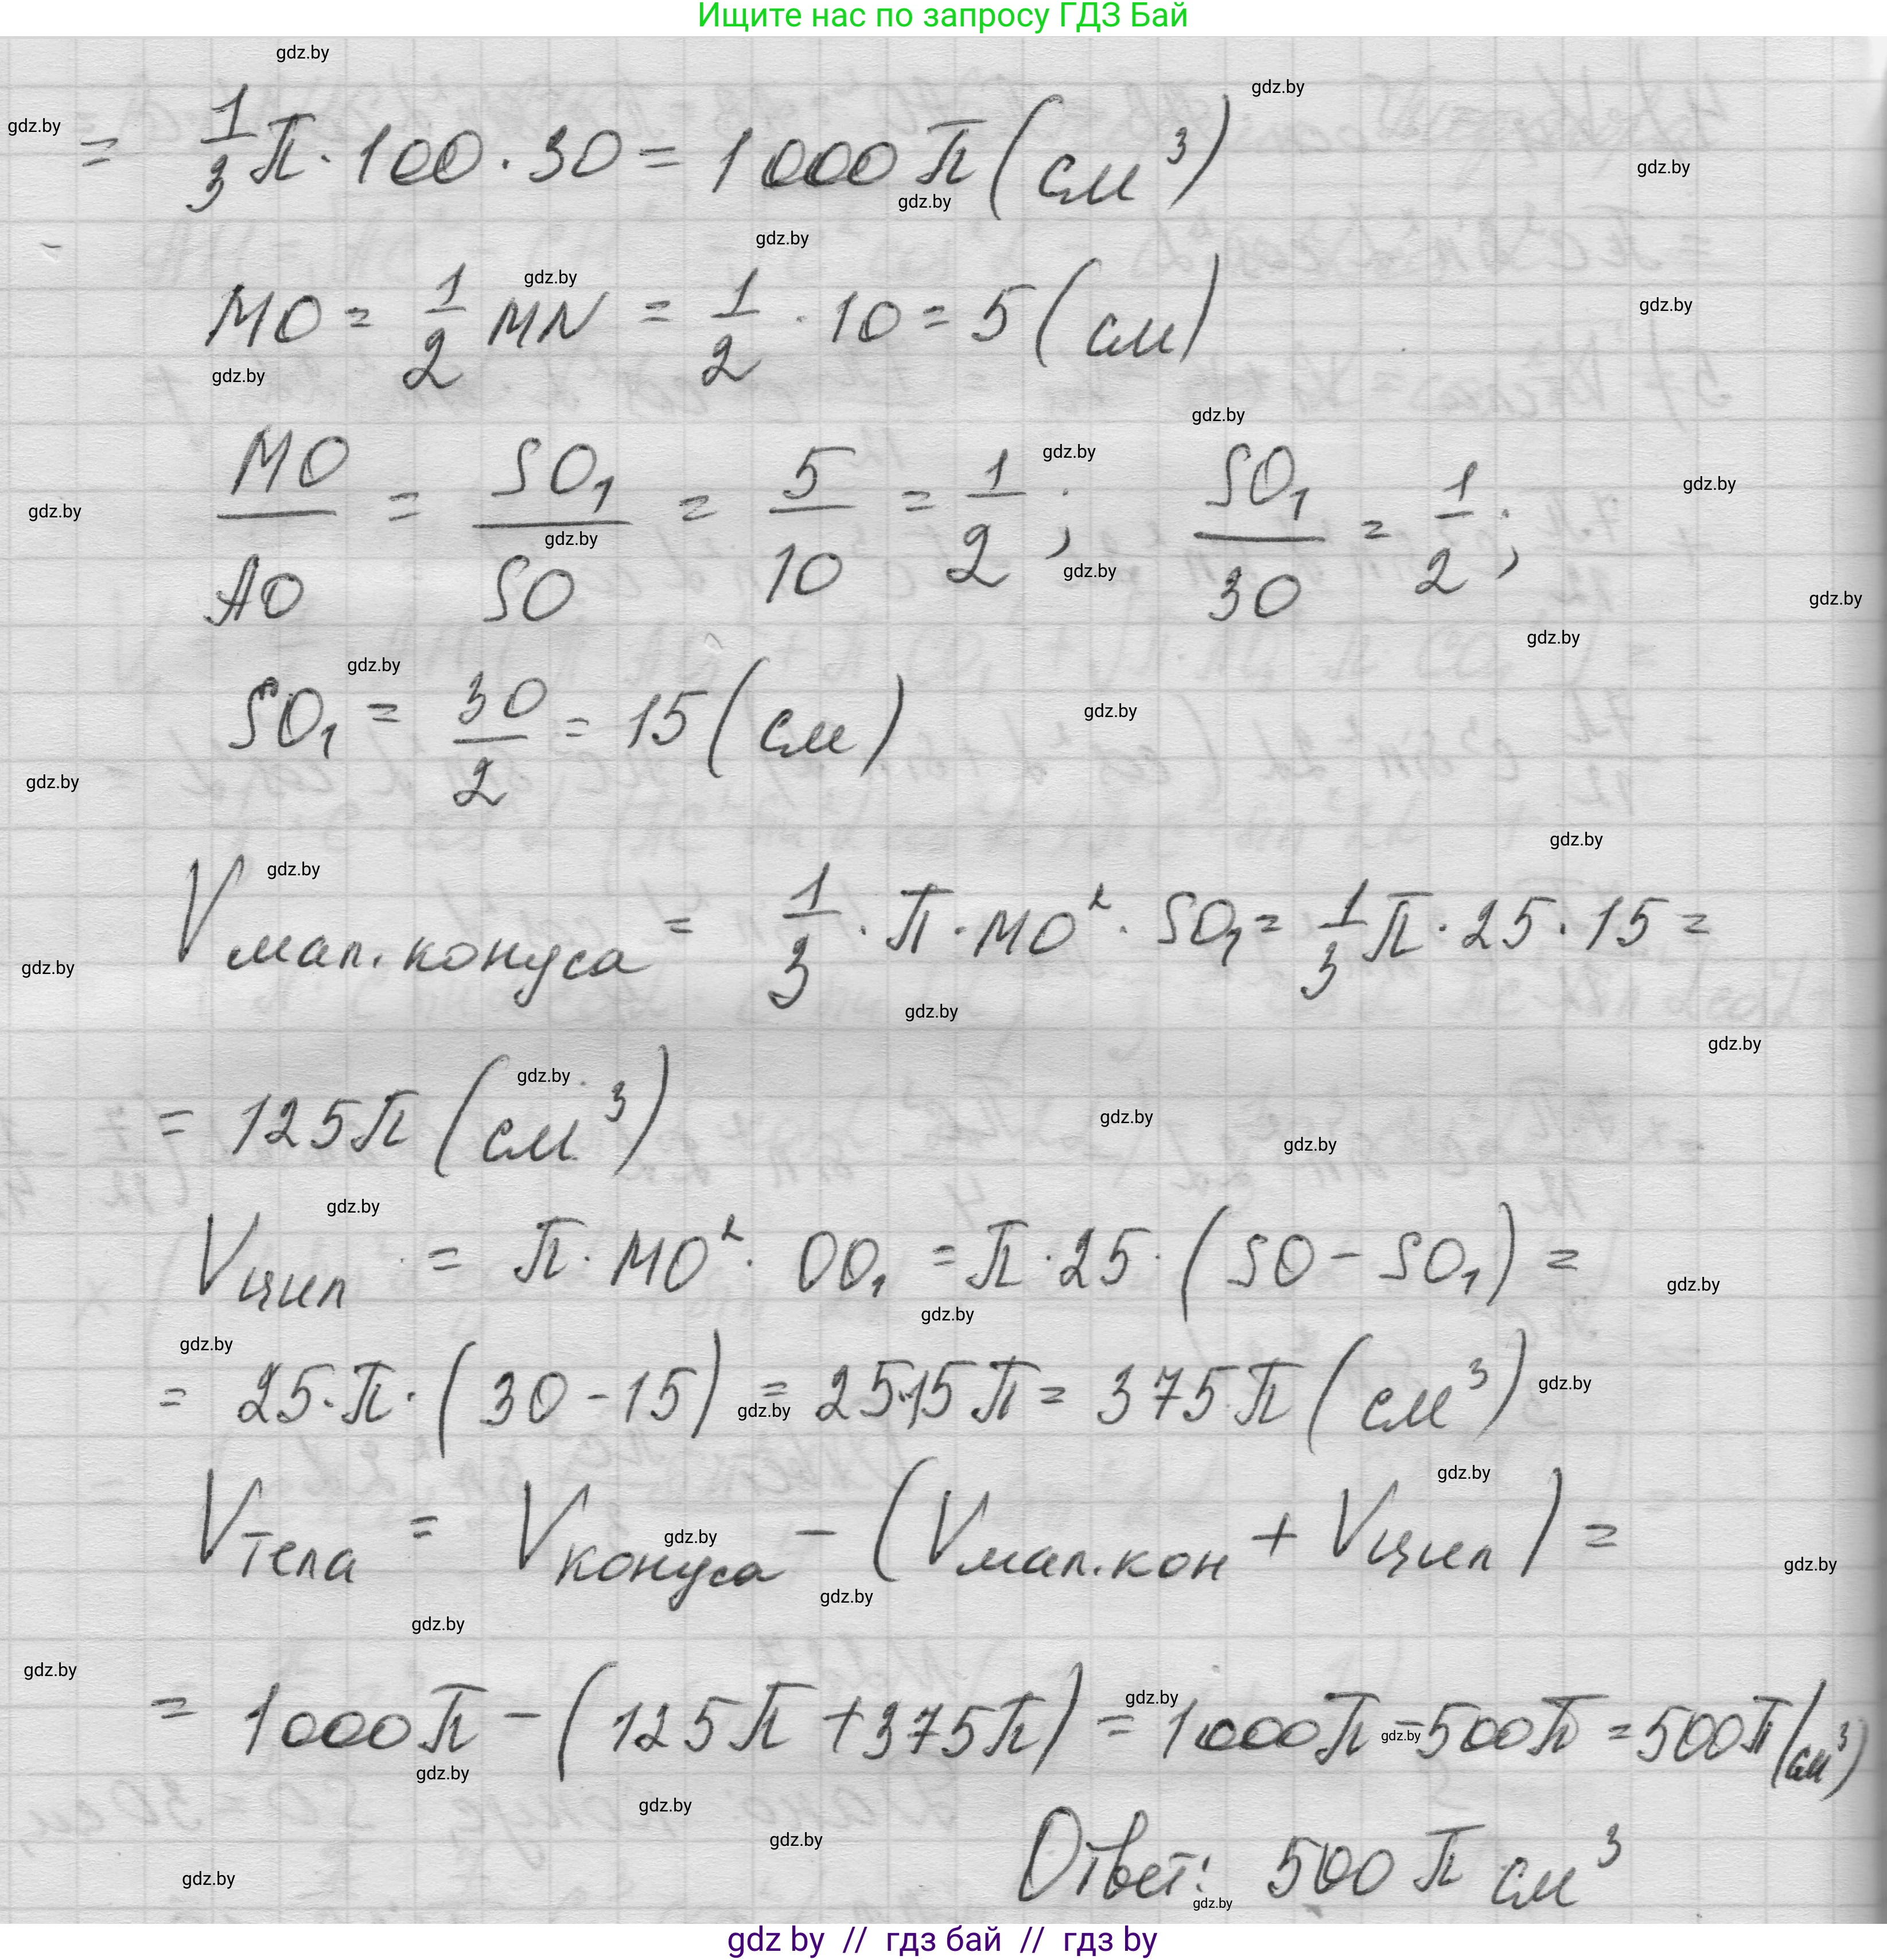 Ищите нас по запросу ГДЗ Бай
= 1/3 π · 100 · 30 = 1000 π (см³)
MO = 1/2 MN = 1/2 · 10 = 5 (см)
MO/AO = SO₁/SO = 5/10 = 1/2; SO₁/30 = 1/2;
SO₁ = 30/2 = 15 (см)
V мал. конуса = 1/3 · π · MO² · SO₁ = 1/3 π · 25 · 15 =
= 125π (см³)
V цил = π · MO² · OO₁ = π · 25 · (SO - SO₁) =
= 25 · π · (30 - 15) = 25·15 π = 375 π (см³)
V тела = V конуса - (V мал. кон + V цил) =
= 1000 π - (125 π + 375 π) = 1000 π - 500 π = 500 π (см³)
Ответ: 500 π см³
gdz by // гдз бай // гдз by